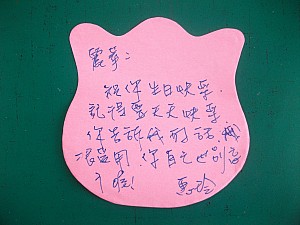 麗夢：
祝你生日快樂.
記得要天天快樂
你告訴我的話,我
很受用.你自己也別忘
了哦!